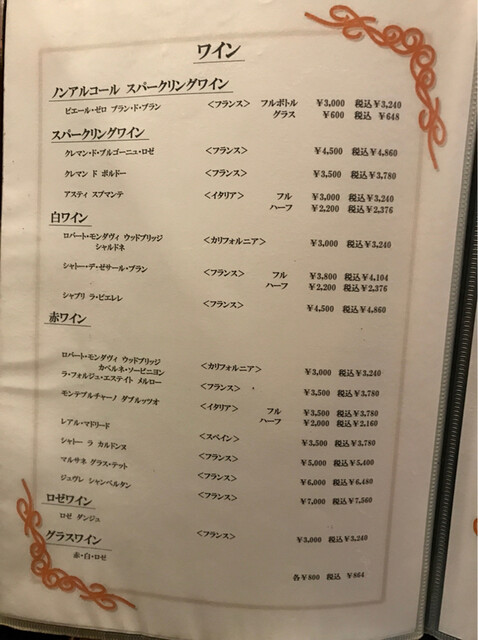 ワイン
ノンアルコール スパークリングワイン
ピエール・ゼロ ブラン・ド・ブラン <フランス> フルボトル ¥3,000 税込¥3,240
グラス ¥600 税込 ¥648
スパークリングワイン
クレマン・ド・ブルゴーニュ・ロゼ <フランス> ¥4,500 税込¥4,860
クレマン ド ボルドー <フランス> ¥3,500 税込¥3,780
アスティ スプマンテ <イタリア> フル ¥3,000 税込¥3,240
ハーフ ¥2,200 税込¥2,376
白ワイン
ロバート・モンダヴィ ウッドブリッジ
シャルドネ <カリフォルニア> ¥3,000 税込¥3,240
シャトー・デ・ゼサール・ブラン <フランス> フル ¥3,800 税込¥4,104
ハーフ ¥2,200 税込¥2,376
シャブリ ラ・ピエレレ <フランス> ¥4,500 税込¥4,860
赤ワイン
ロバート・モンダヴィ ウッドブリッジ
カベルネ・ソービニヨン <カリフォルニア> ¥3,000 税込¥3,240
ラ・フォルジュ・エステイト メルロー <フランス> ¥3,500 税込¥3,780
モンテプルチャーノ ダブルッツオ <イタリア> フル ¥3,500 税込¥3,780
ハーフ ¥2,000 税込¥2,160
レアル・マドリード <スペイン> ¥3,500 税込¥3,780
シャトー ラ カルドンヌ <フランス> ¥5,000 税込¥5,400
マルサネ グラス・テット <フランス> ¥6,000 税込¥6,480
ジュヴレ シャンベルタン <フランス> ¥7,000 税込¥7,560
ロゼワイン
ロゼ ダンジュ <フランス> ¥3,000 税込¥3,240
グラスワイン
赤・白・ロゼ 各¥800 税込 ¥864